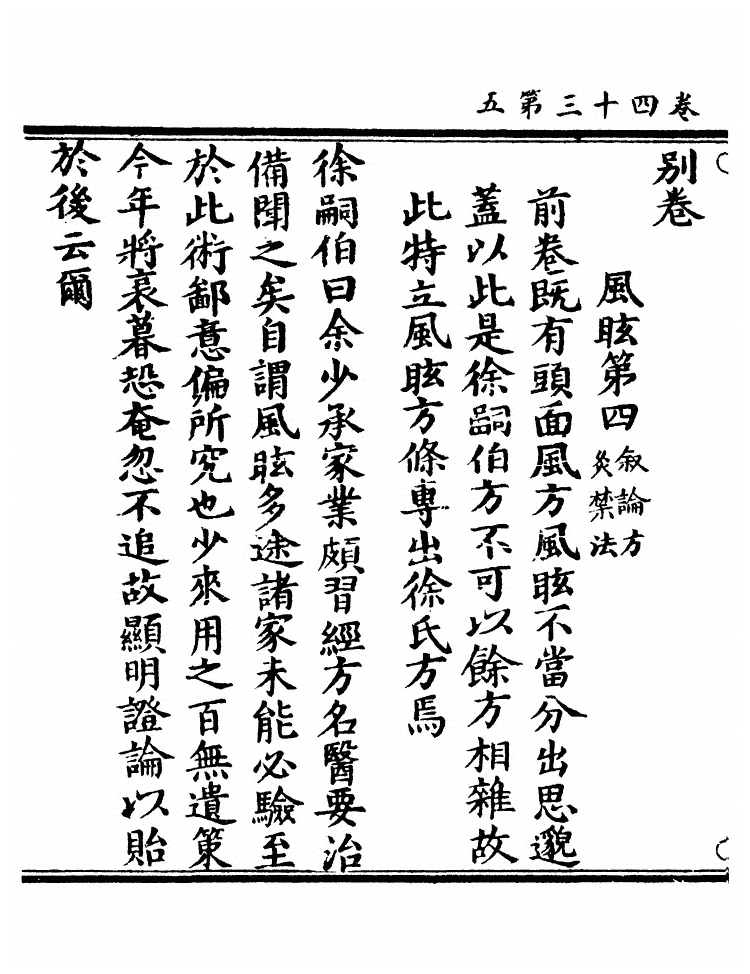 卷四十三第五
別卷
風眩第四 叙論方
灸禁法
前卷既有頭面風方風眩不當分出思邈
蓋以此是徐嗣伯方不可以餘方相雜故
此特立風眩方條專出徐氏方焉
徐嗣伯曰余少承家業頗習經方名醫要治
備聞之矣自謂風眩多途諸家未能必驗至
於此術鄙意偏所究也少來用之百無遺策
今年將衰暮恐奄忽不追故顯明證論以貽
於後云爾